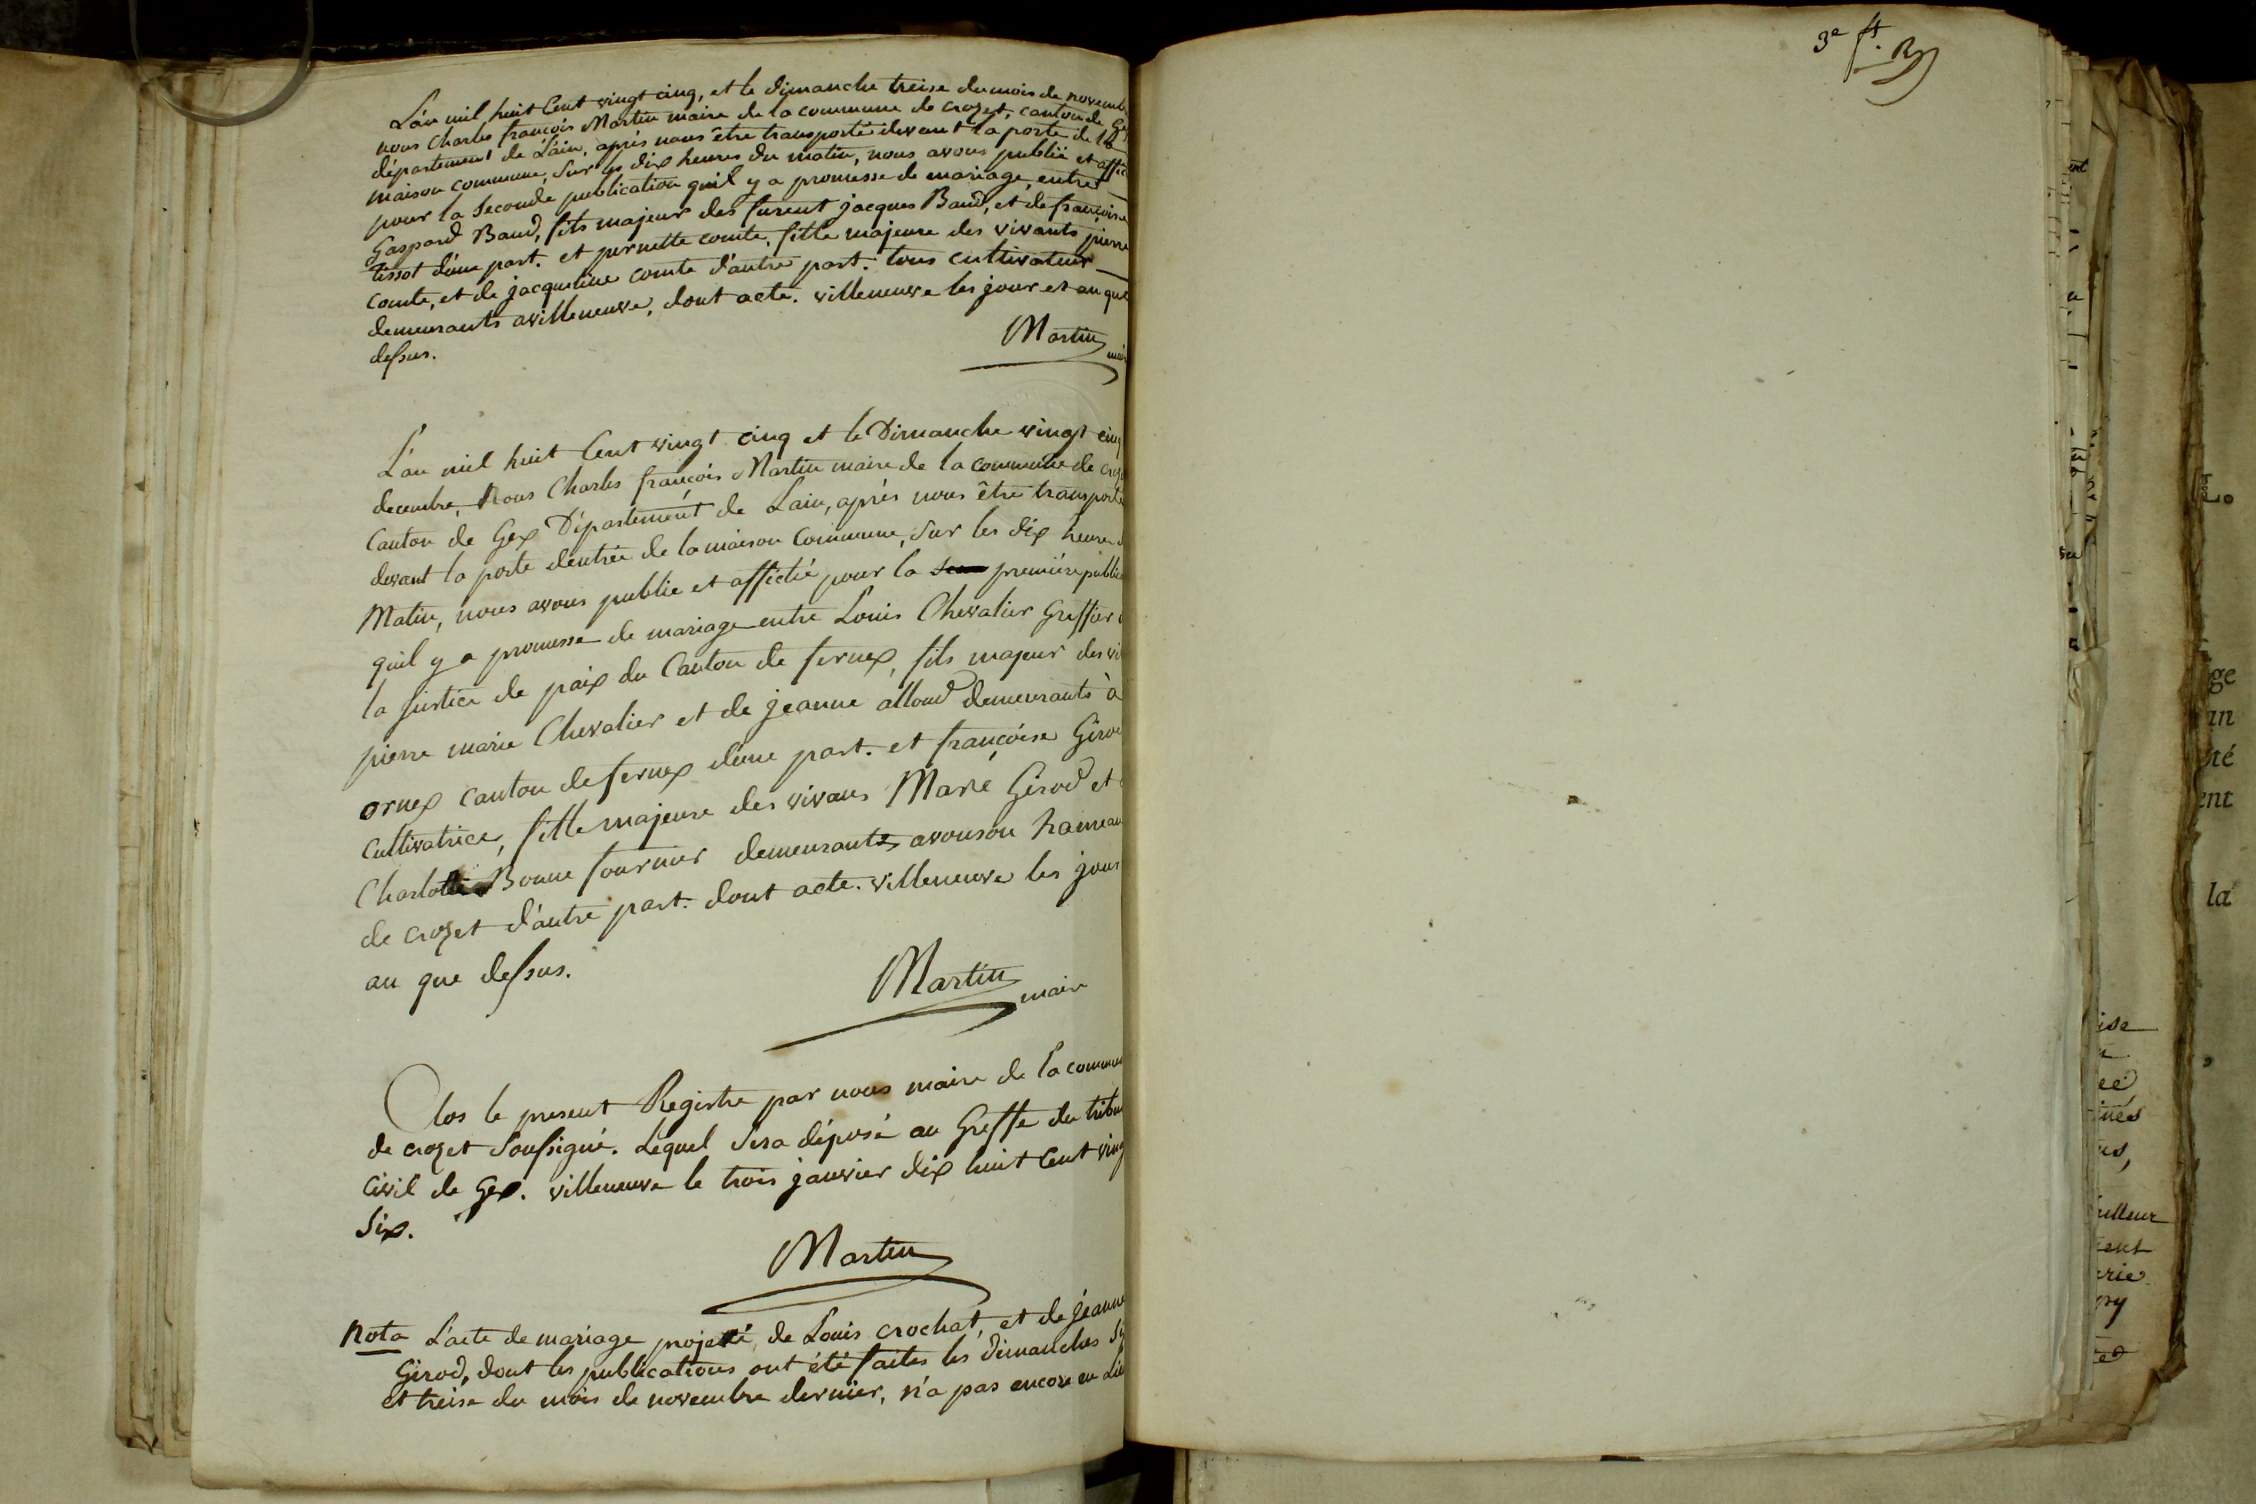 L'an mil huit Cent vingt cinq, et le dimanche treise du mois de novemb
nous Charles françois Martin maire de la commune de crozet, canton de Gex
département de L'ain, après nous être transporté devant la porte de la
maison commune, sur les dix heures du matin, nous avons publié et affic
pour la Seconde publication quil y a promesse de mariage, entre
Gaspard Baud, fils majeur des furent jacques Baud, et de françoise
tissot d'une part. et pernette comte, fille majeure des vivants pierre
comte, et de jacqueline comte d'autre part. tous cultivateur
demeurants avilleneuve, dont acte. villeneuve les jour et an que
dessus.
Martin mai
L'an mil huit Cent vingt cinq et le Dimanche vingt cinq
decembre, Nous Charles françois Martin maire de la commune de croz
Canton de Gex Département de Lain, après nous être transporté
devant la porte dentrée de la maison Commune, sur les dix heures d
Matin, nous avons publié et affiché pour la première public
quil y a promesse de mariage entre Louis Chevalier Greffier d
la justice de paix du Canton de fernex, fils majeur des vi
pierre marie Chevalier et de jeanne alloud demeurants à
ornex canton de fernex d'une part. et françoise Girod
Cultivatrice, fille majeure des vivans Marie Girod et
Charlotte Bonne fournier demeurants avouson hameau
de crozet d'autre part. dont acte. villeneuve les jour
an que dessus.
Martin maire
Clos le present Registre par nous maire de la commun
de crozet soussigné. Lequel sera déposé au Greffe du tribun
Civil de Gex. villeneuve le trois janvier dix huit Cent ving
Six.
Martin
Nota L'acte de mariage projetté, de Louis crochat, et de jeanne
Girod, dont les publications ont été faites les dimanches
et treise du mois de novembre dernier, n'a pas encore eu Lieu
3e ft.